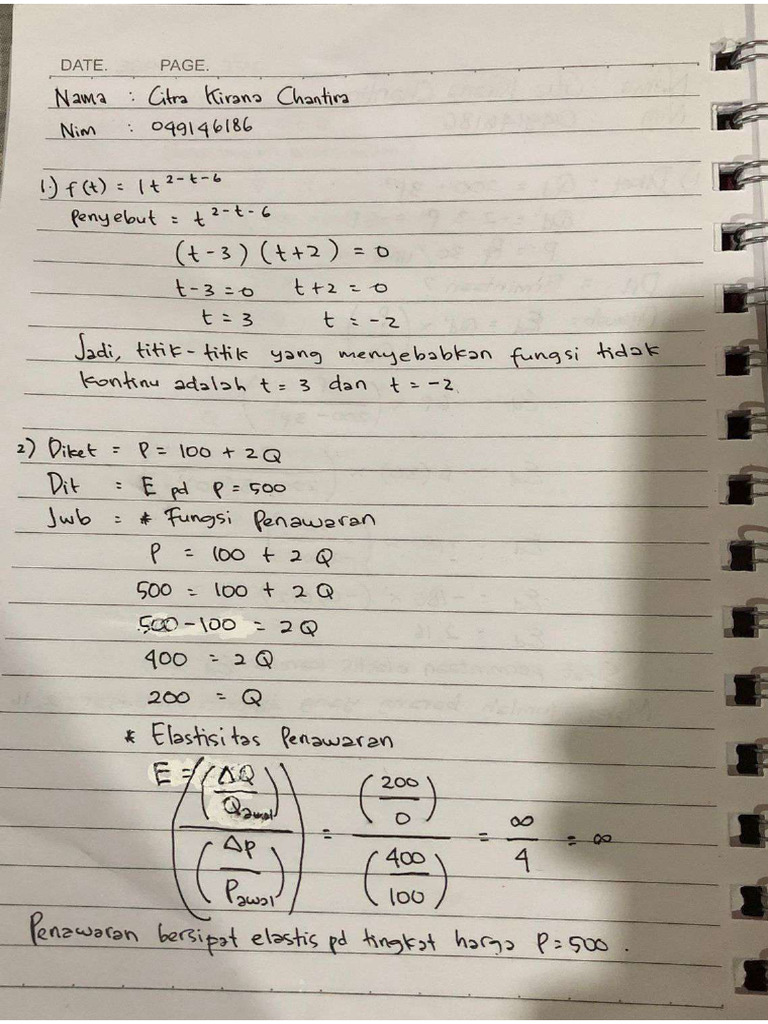 DATE. PAGE.
Nama : Citra Kirana Chantira
Nim : 049146186
1.) f(t) = 1t^2-t-6
Penyebut = t^2-t-6
(t-3) (t+2) = 0
t-3=0 t+2=0
t=3 t=-2
Jadi, titik-titik yang menyebabkan fungsi tidak
kontinu adalah t = 3 dan t = -2.
2) Diket = P = 100 + 2Q
Dit : E pd P = 500
Jwb = * Fungsi Penawaran
P = 100 + 2Q
500 = 100 + 2Q
500-100 = 2Q
400 = 2Q
200 = Q
* Elastisitas Penawaran
E = ((ΔQ/Qawal)/(ΔP/Pawal)) = (200/0)/(400/100) = ∞/4 = ∞
Penawaran bersipat elastis pd tingkat harga P = 500.